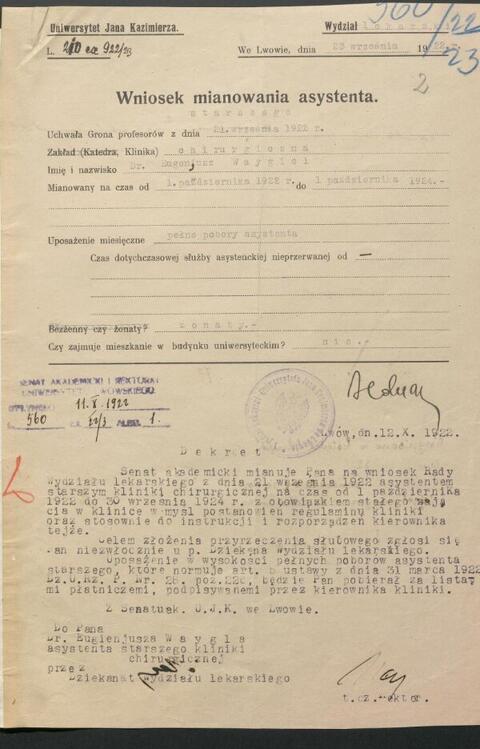 Uniwersytet Jana Kazimierza.
Wydział lekarski
L. 922/23
We Lwowie, dnia 23 września 1922 r.
560/22
23
2
Wniosek mianowania asystenta.
starszego
Uchwała Grona profesorów z dnia 21. września 1922 r.
Zakład (Katedra, Klinika) chirurgiczna
Imię i nazwisko Dr. Eugenjusz Waygiel
Mianowany na czas od 1. października 1922 do 1 października 1924.-
Uposażenie miesięczne pełne pobory asystenta
Czas dotychczasowej służby asystenckiej nieprzerwanej od —
Bezżenny czy żonaty? żonaty.-
Czy zajmuje mieszkanie w budynku uniwersyteckim? nie.-
SENAT AKADEMICKI I REKTORAT
11.X.1922
560 22/3 1.
Lwów, dn. 12.X.1922.
Dekret
Senat akademicki mianuje Pana na wniosek Rady
Wydziału lekarskiego z dnia 21 września 1922 asystentem
starszym kliniki chirurgicznej na czas od 1 października
1922 do 30 września 1924 r. z obowiązkiem stałego zaję
cia w klinice w myśl postanowień regulaminu kliniki
oraz stosownie do instrukcji i rozporządzeń kierownika
tejże.
Celem złożenia przyrzeczenia służbowego zgłosi się
Pan niezwłocznie u p. Dziekana Wydziału lekarskiego.
Uposażenie w wysokości pełnych poborów asystenta
starszego, które normuje art. b ustawy z dnia 31 marca 1922
Dz.U.Rz.P. Nr. 28. poz.226, będzie Pan pobierał za lista
mi płatniczemi, podpisywanemi przez kierownika kliniki.
Z Senatu U.J.K. we Lwowie.
Do Pana
Dr. Eugienjusza Waygla
asystenta starszego kliniki
chirurgicznej
przez
Dziekanat Wydziału lekarskiego
t.cz. Rektor.